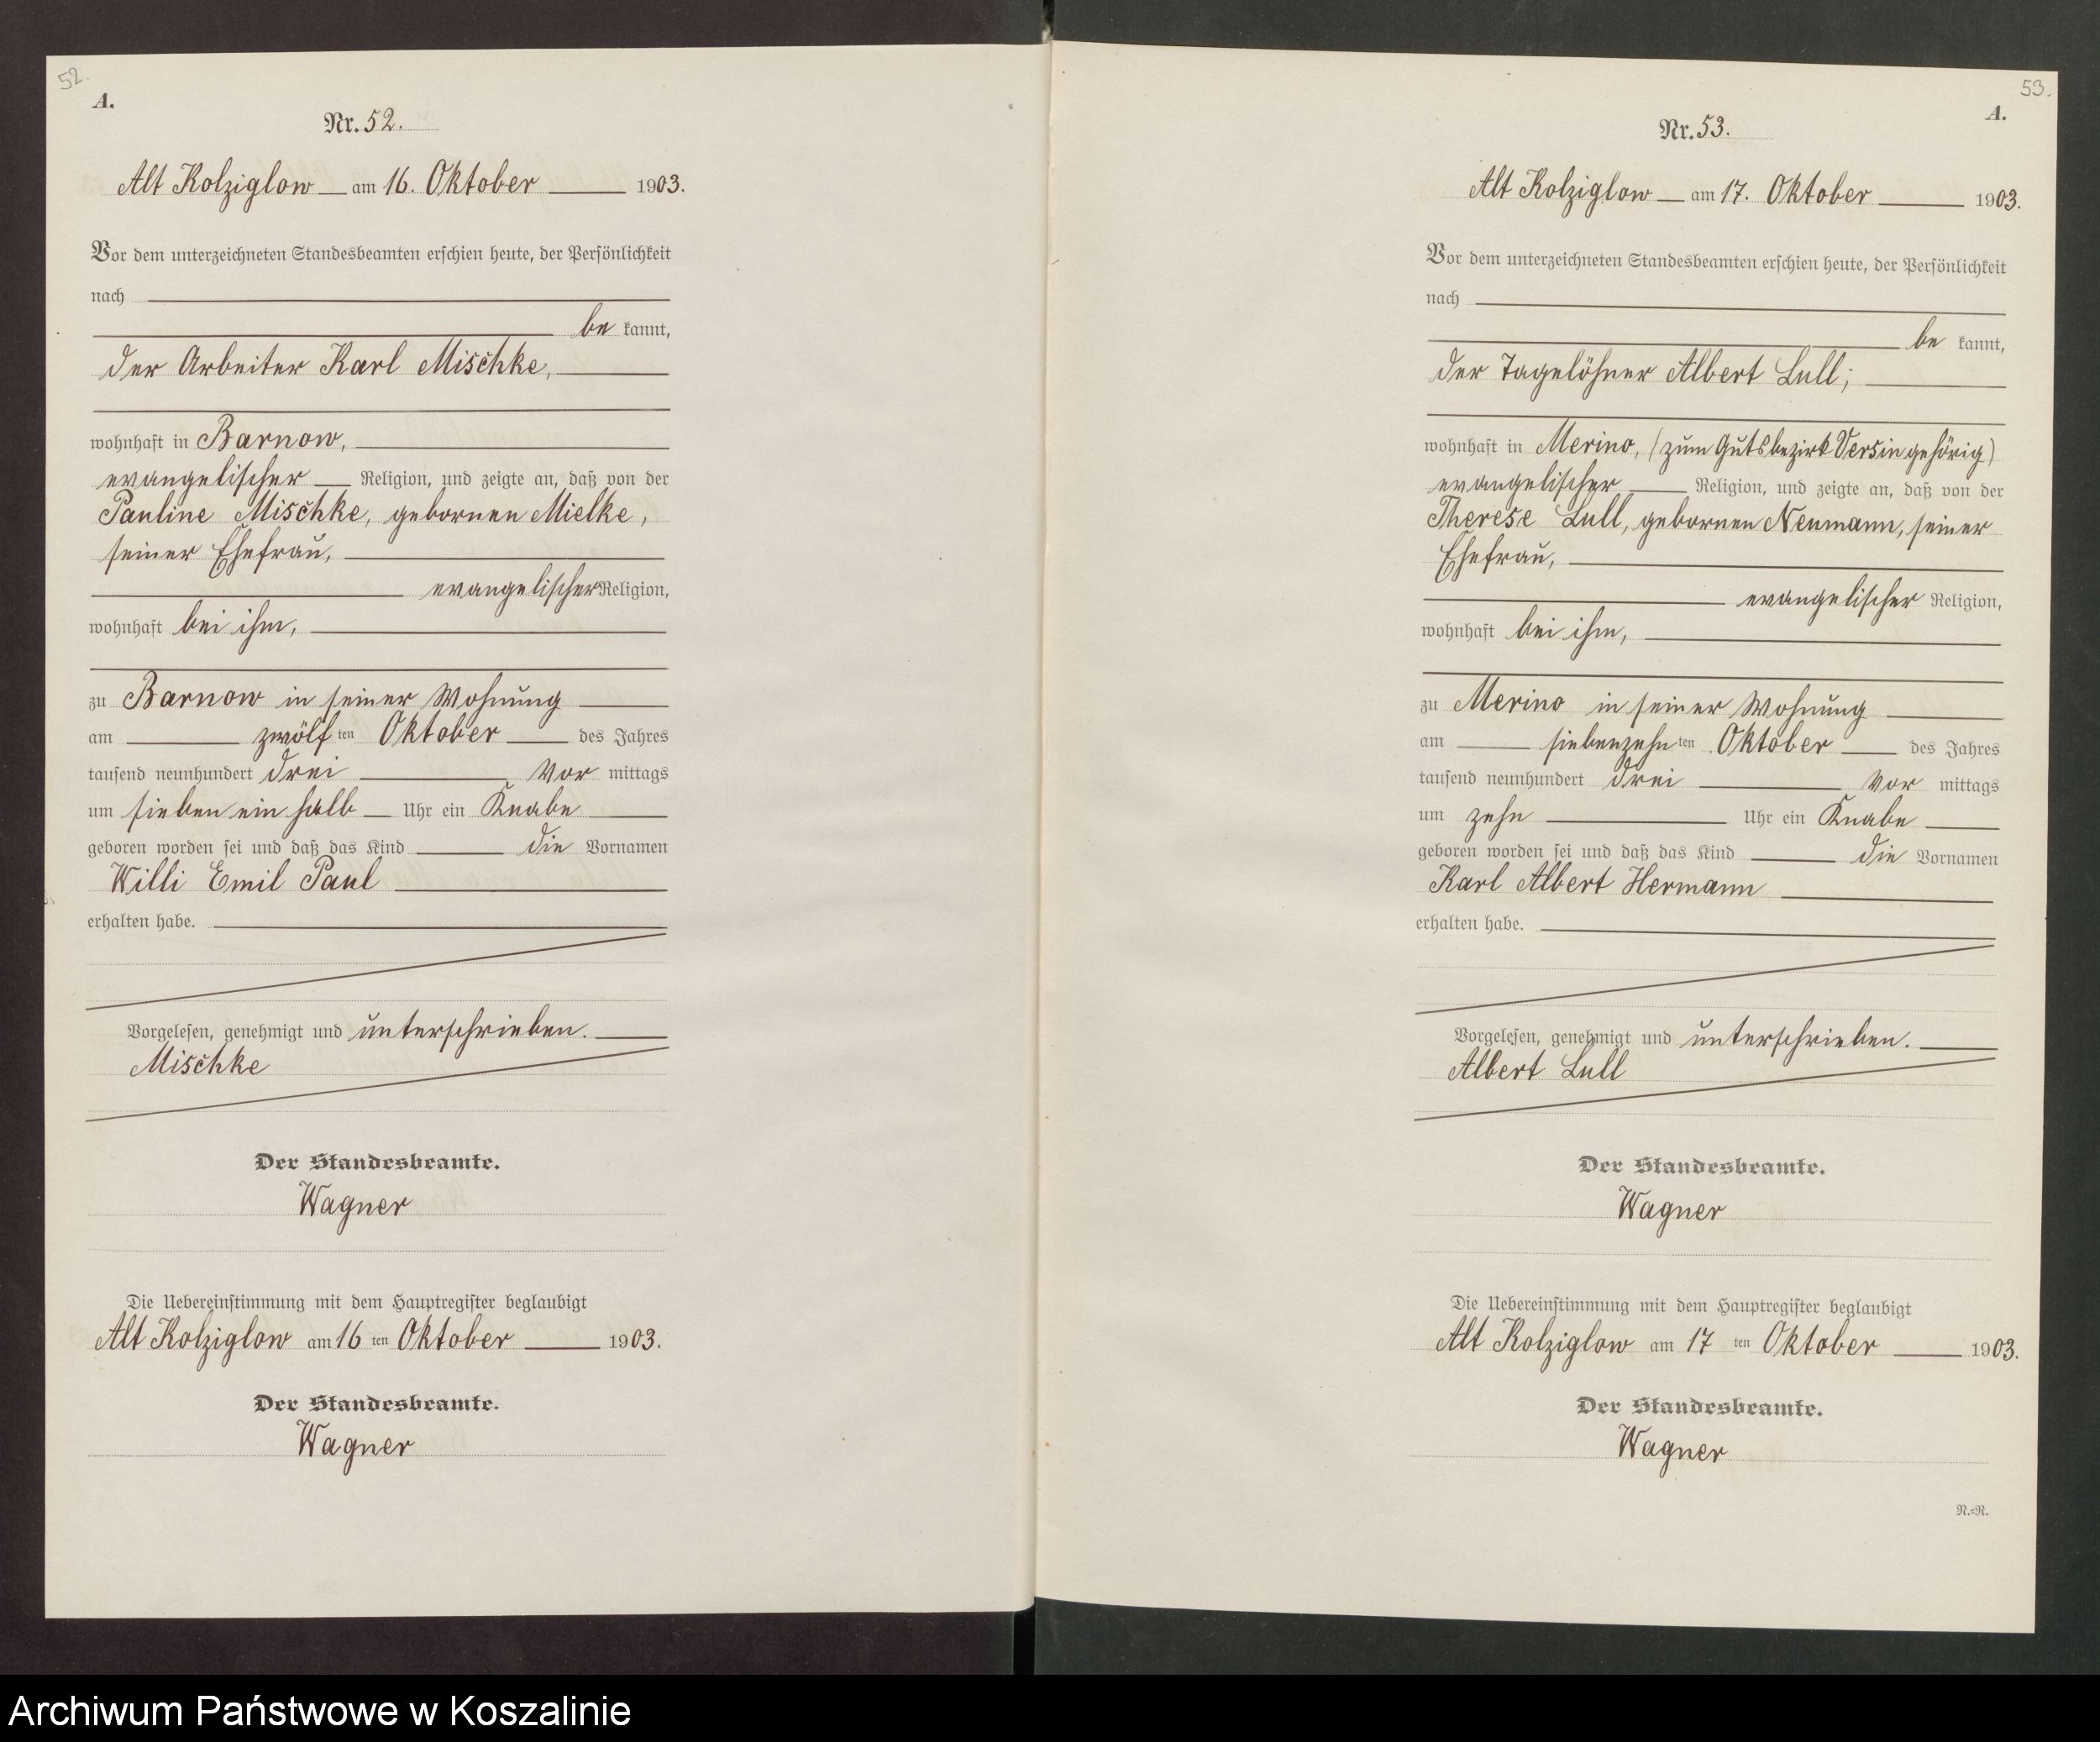 52.
A.
Nr. 52.
Alt Kolziglow am 16. Oktober 1903.
Vor dem unterzeichneten Standesbeamten erschien heute, der Persönlichkeit
nach
be kannt,
der Arbeiter Karl Mischke,
wohnhaft in Barnow,
evangelischer Religion, und zeigte an, daß von der
Pauline Mischke, gebornen Mielke,
seiner Ehefrau,
evangelischer Religion,
wohnhaft bei ihm,
zu Barnow in seiner Wohnung
am zwölf ten Oktober des Jahres
tausend neunhundert drei Vor mittags
um sieben ein halb Uhr ein Knabe
geboren worden sei und daß das Kind die Vornamen
Willi Emil Paul
erhalten habe.
Vorgelesen, genehmigt und unterschrieben.
Mischke
Der Standesbeamte.
Wagner
Die Uebereinstimmung mit dem Hauptregister beglaubigt
Alt Kolziglow am 16 ten Oktober 1903.
Der Standesbeamte.
Wagner
53.
A.
Nr. 53.
Alt Kolziglow am 17. Oktober 1903.
Vor dem unterzeichneten Standesbeamten erschien heute, der Persönlichkeit
nach
be kannt,
der Tagelöhner Albert Lull;
wohnhaft in Merino, (zum Gutsbezirk Versin gehörig)
evangelischer Religion, und zeigte an, daß von der
Therese Lull, gebornen Neumann, seiner
Ehefrau,
evangelischer Religion,
wohnhaft bei ihm,
zu Merino in seiner Wohnung
am siebenzehn ten Oktober des Jahres
tausend neunhundert drei Vor mittags
um zehn Uhr ein Knabe
geboren worden sei und daß das Kind die Vornamen
Karl Albert Hermann
erhalten habe.
Vorgelesen, genehmigt und unterschrieben.
Albert Lull
Der Standesbeamte.
Wagner
Die Uebereinstimmung mit dem Hauptregister beglaubigt
Alt Kolziglow am 17 ten Oktober 1903.
Der Standesbeamte.
Wagner
N.=R.
Archiwum Państwowe w Koszalinie